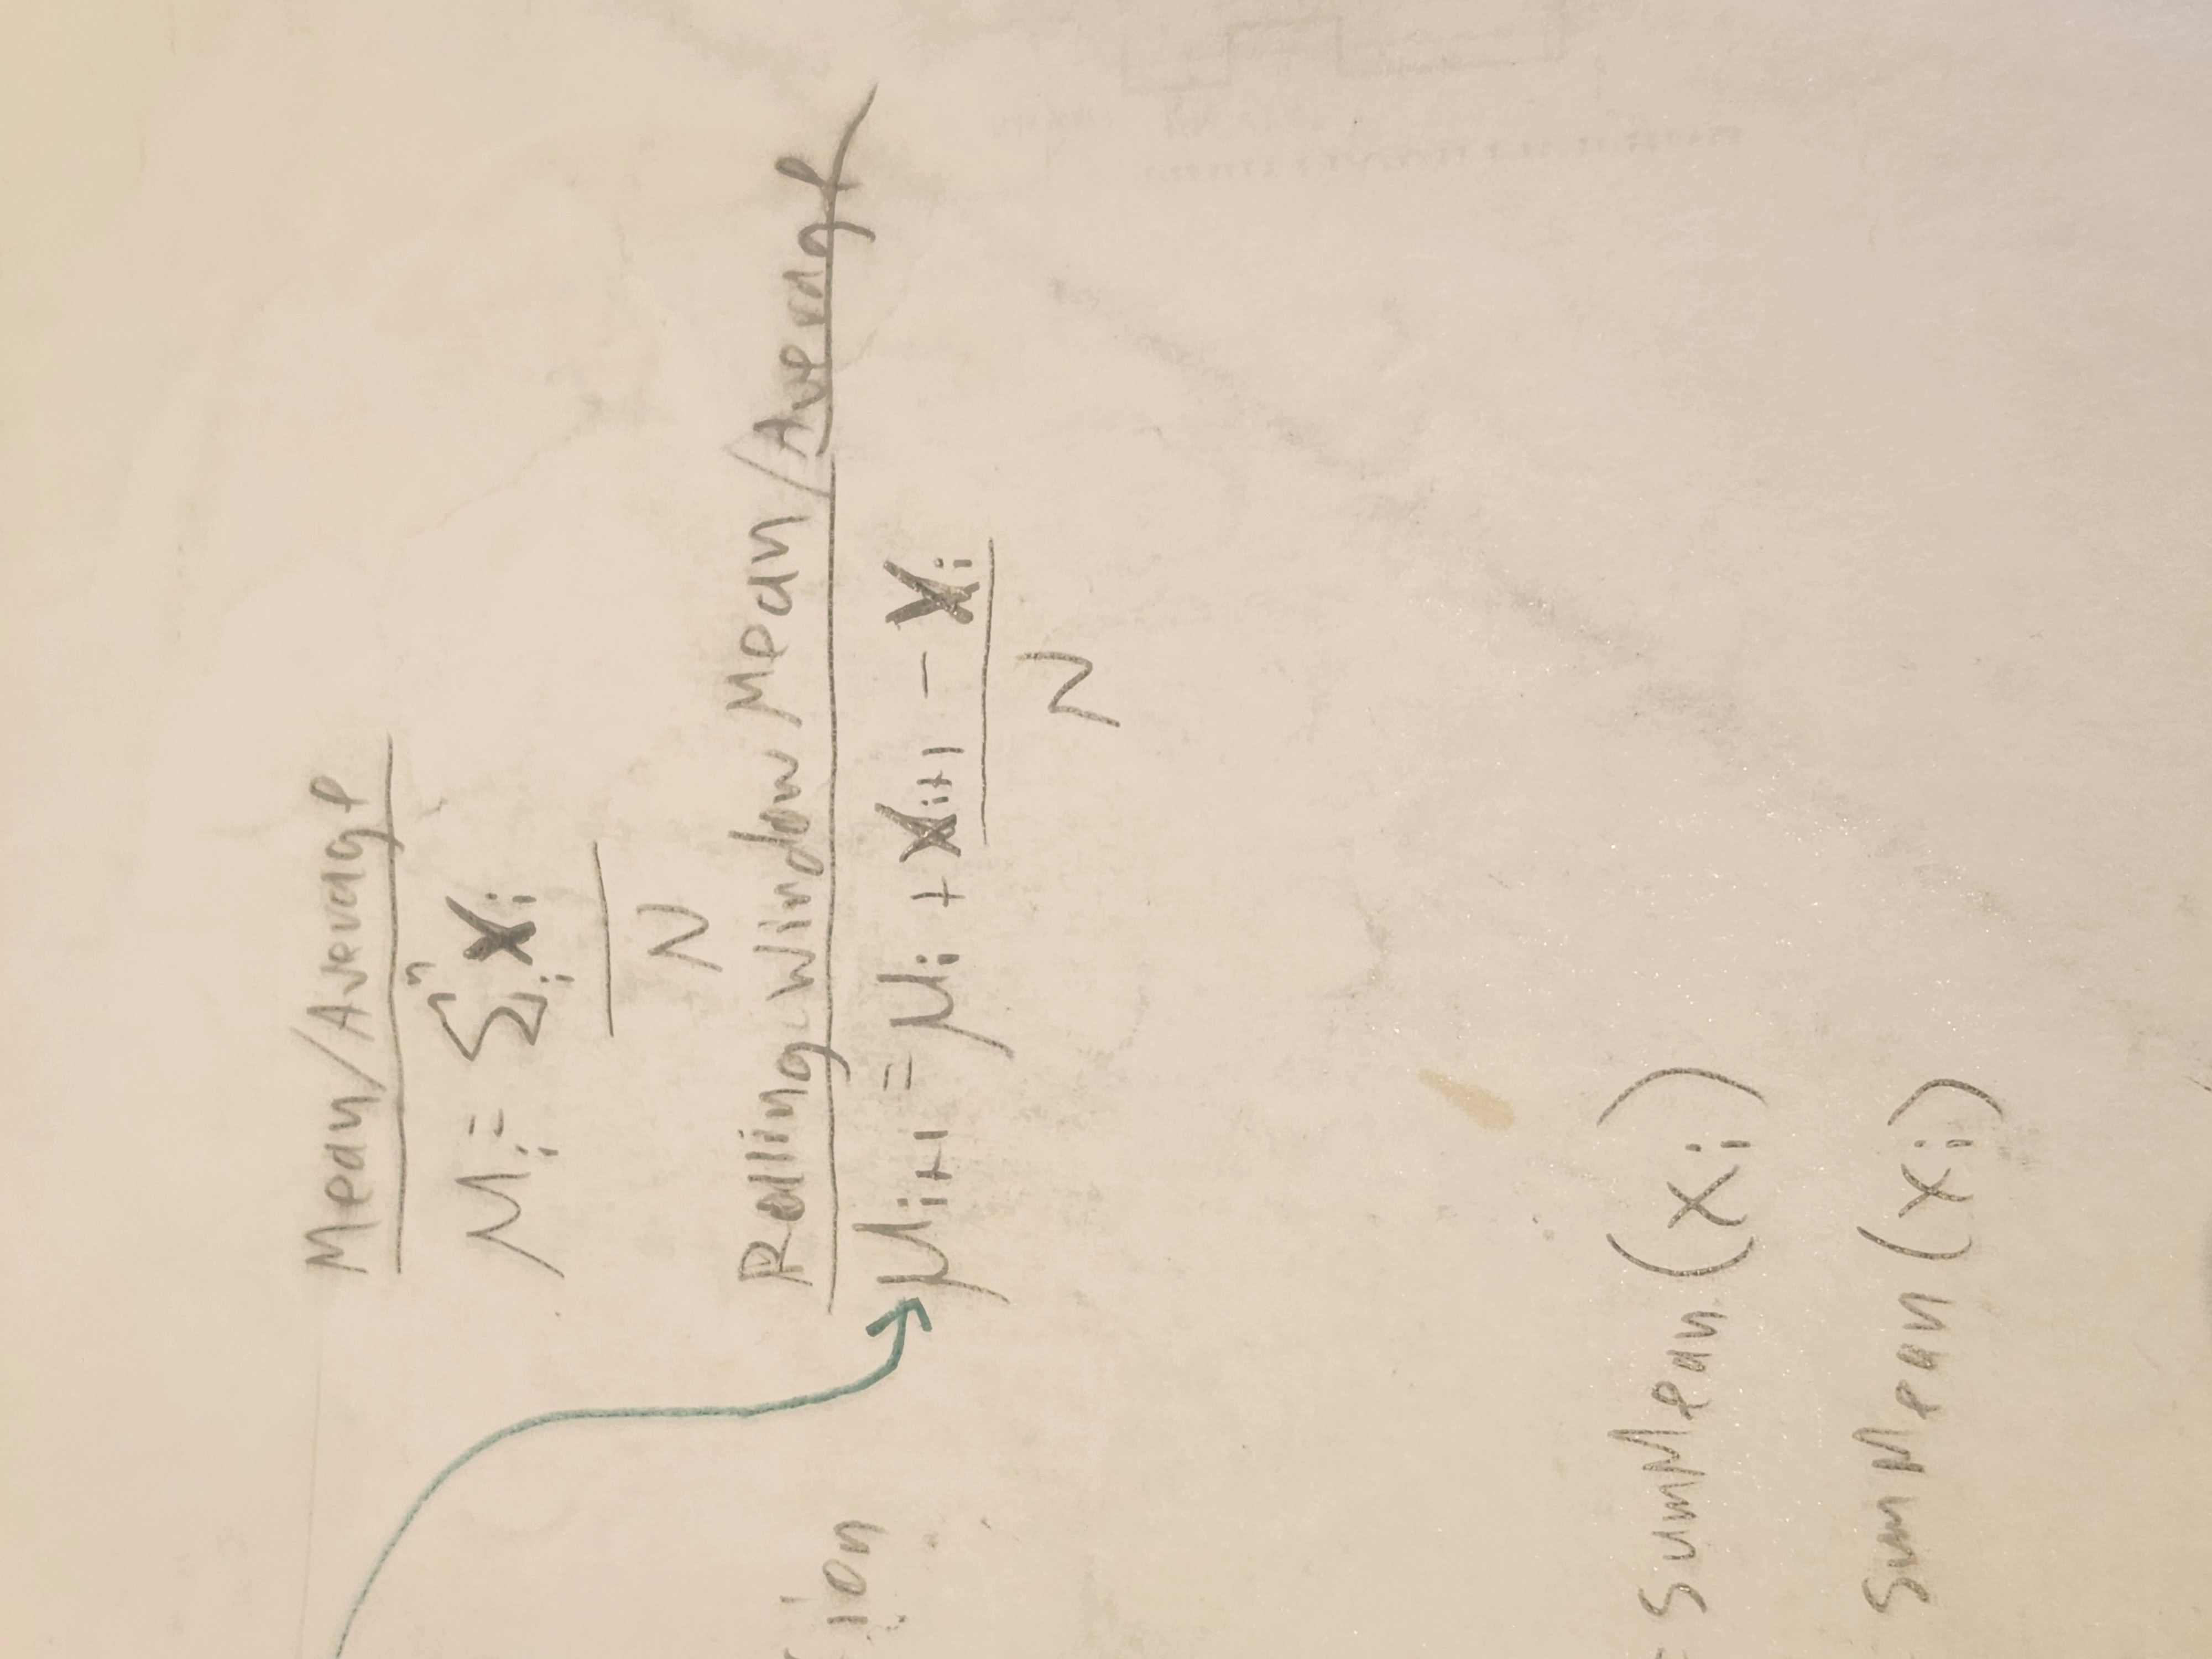 Mean/Average
μi = Σ n i xi
N
Rolling Window Mean/Average
ion
μi+1 = μi + xi+1 - xi
N
= sumMean(xi)
sumMean(xi)